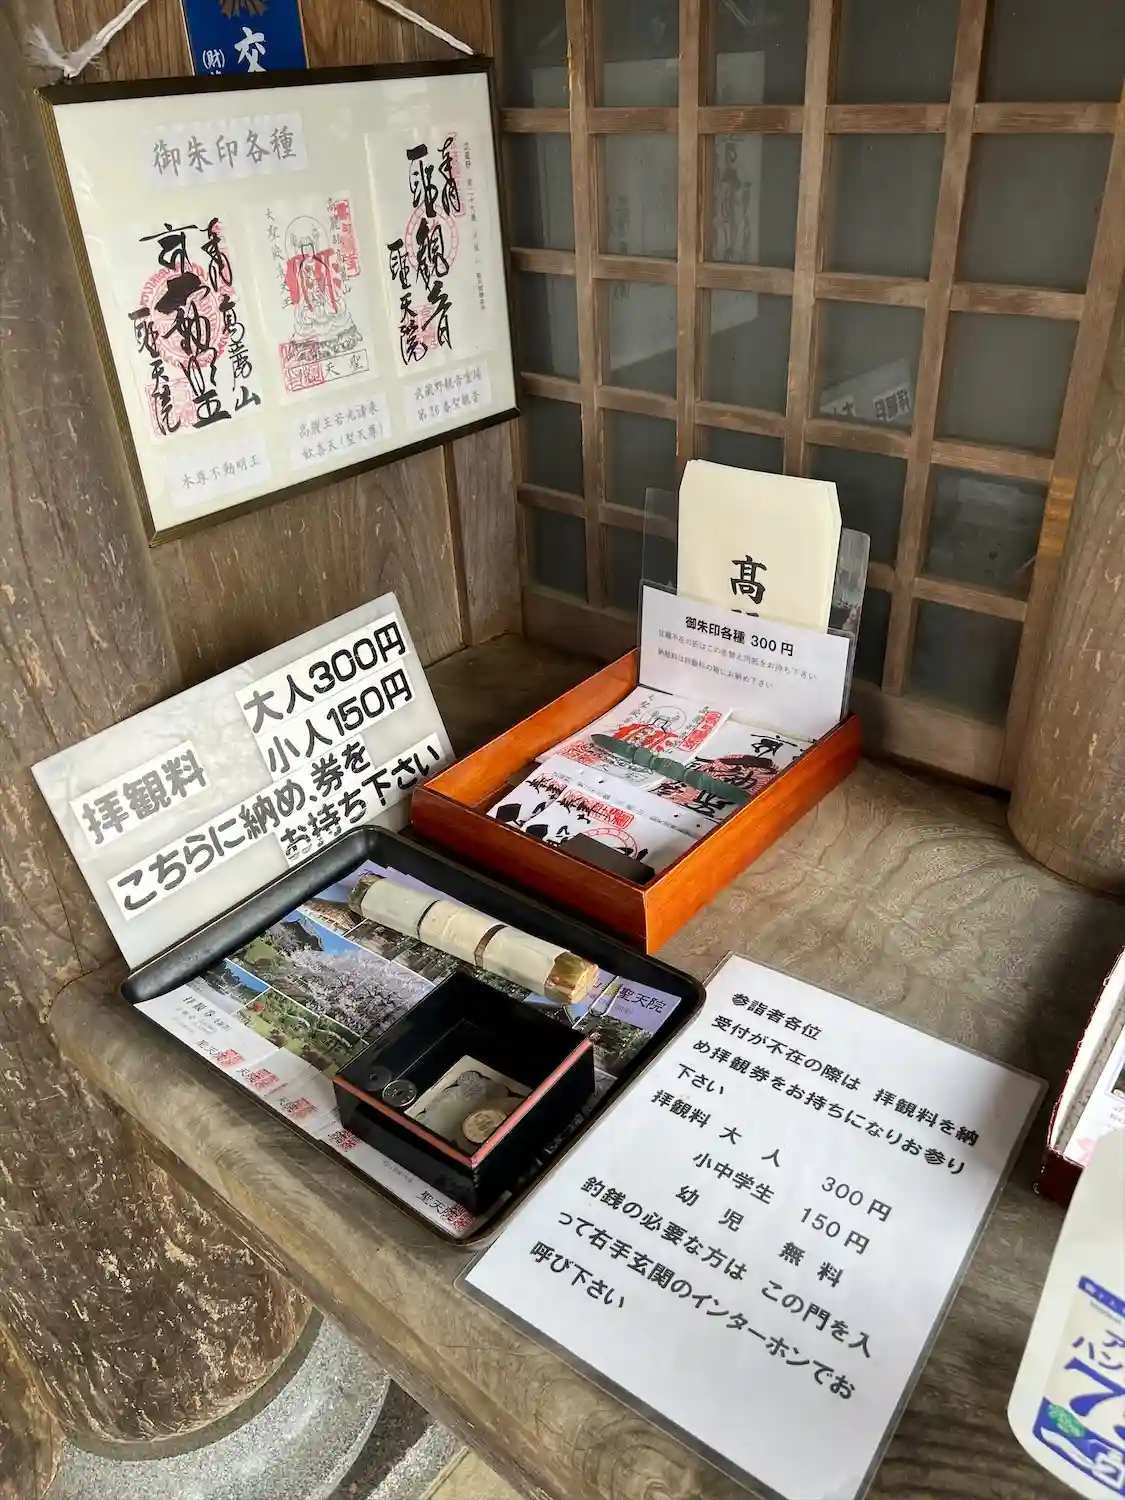 交
(財)
御朱印各種
高麗山
聖天院
聖天
聖観音
聖天院
本尊不動明王
高麗王若光請来
歓喜天(聖天尊)
武蔵野観音霊場
第26番聖観音
高
御朱印各種 300円
住職不在の折はこの書替え用紙をお持ち下さい
納経料は拝観料の箱にお納め下さい
大人300円
小人150円
拝観料
こちらに納め、券を
お持ち下さい
聖天院
拝観券
聖天院
聖天院
参詣者各位
受付が不在の際は 拝観料を納
め拝観券をお持ちになりお参り
下さい
拝観料 大 人 300円
小中学生 150円
幼 児 無 料
釣銭の必要な方は この門を入
って右手玄関のインターホンでお
呼び下さい
ア
ハン
7